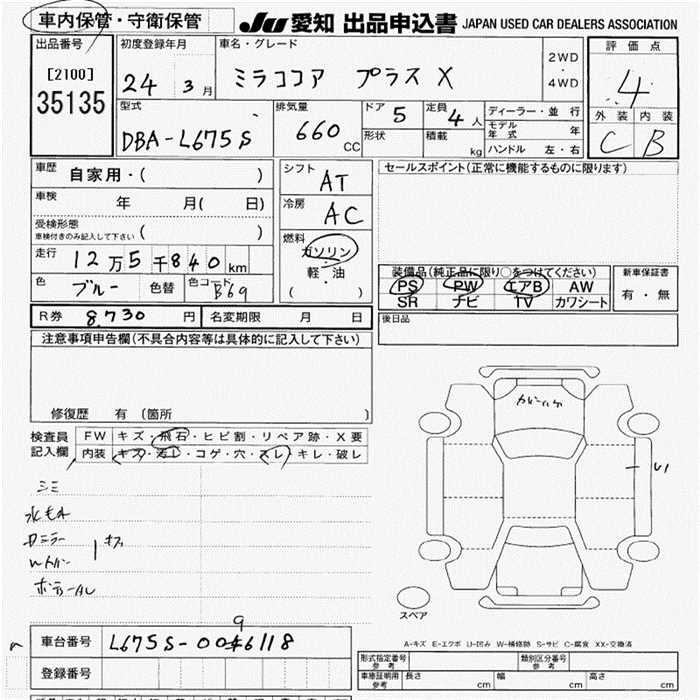 車内保管・守衛保管
JU 愛知 出品申込書 JAPAN USED CAR DEALERS ASSOCIATION
出品番号 初度登録年月 車名・グレード 評価点
[2100] 24 年 3 月 ミラココア プラス X 2WD・4WD 4
35135
型式 排気量 ドア 5 定員 4 人 ディーラー・並行 外装 内装
DBA-L675S 660 CC 形状 積載 kg モデル年式 年 C B
ハンドル 左・右
車歴 自家用・( ) シフト AT セールスポイント(正常に機能するものに限ります)
車検 年 月( 日) 冷房 AC
受検形態
車検付きのみ記入して下さい ( )
走行 12万5千840km 燃料 ガソリン・軽・油 ( )
色 ブルー 色替 色コード B69
装備品(純正品に限り○をつけてください) 新車保証書
PS PW エアB AW 有・無
SR ナビ TV カワシート
R券 8,730 円 名変期限 月 日 後日品
注意事項申告欄(不具合内容等は具体的に記入して下さい)
修復歴 有 (箇所 )
検査員記入欄 FW キズ・飛石・ヒビ割・リペア跡・X要
内装 キズ・汚レ・コゲ・穴・スレ・キレ・破レ
シミ
スペア
A-キズ E-エクボ U-凹み W-補修跡 S-サビ C-腐食 XX-交換済
車台番号 L675S-0096118
登録番号
形式指定番号 参考 類別区分番号 参考
車庫証明用 参考 長さ cm 幅 cm 高さ cm